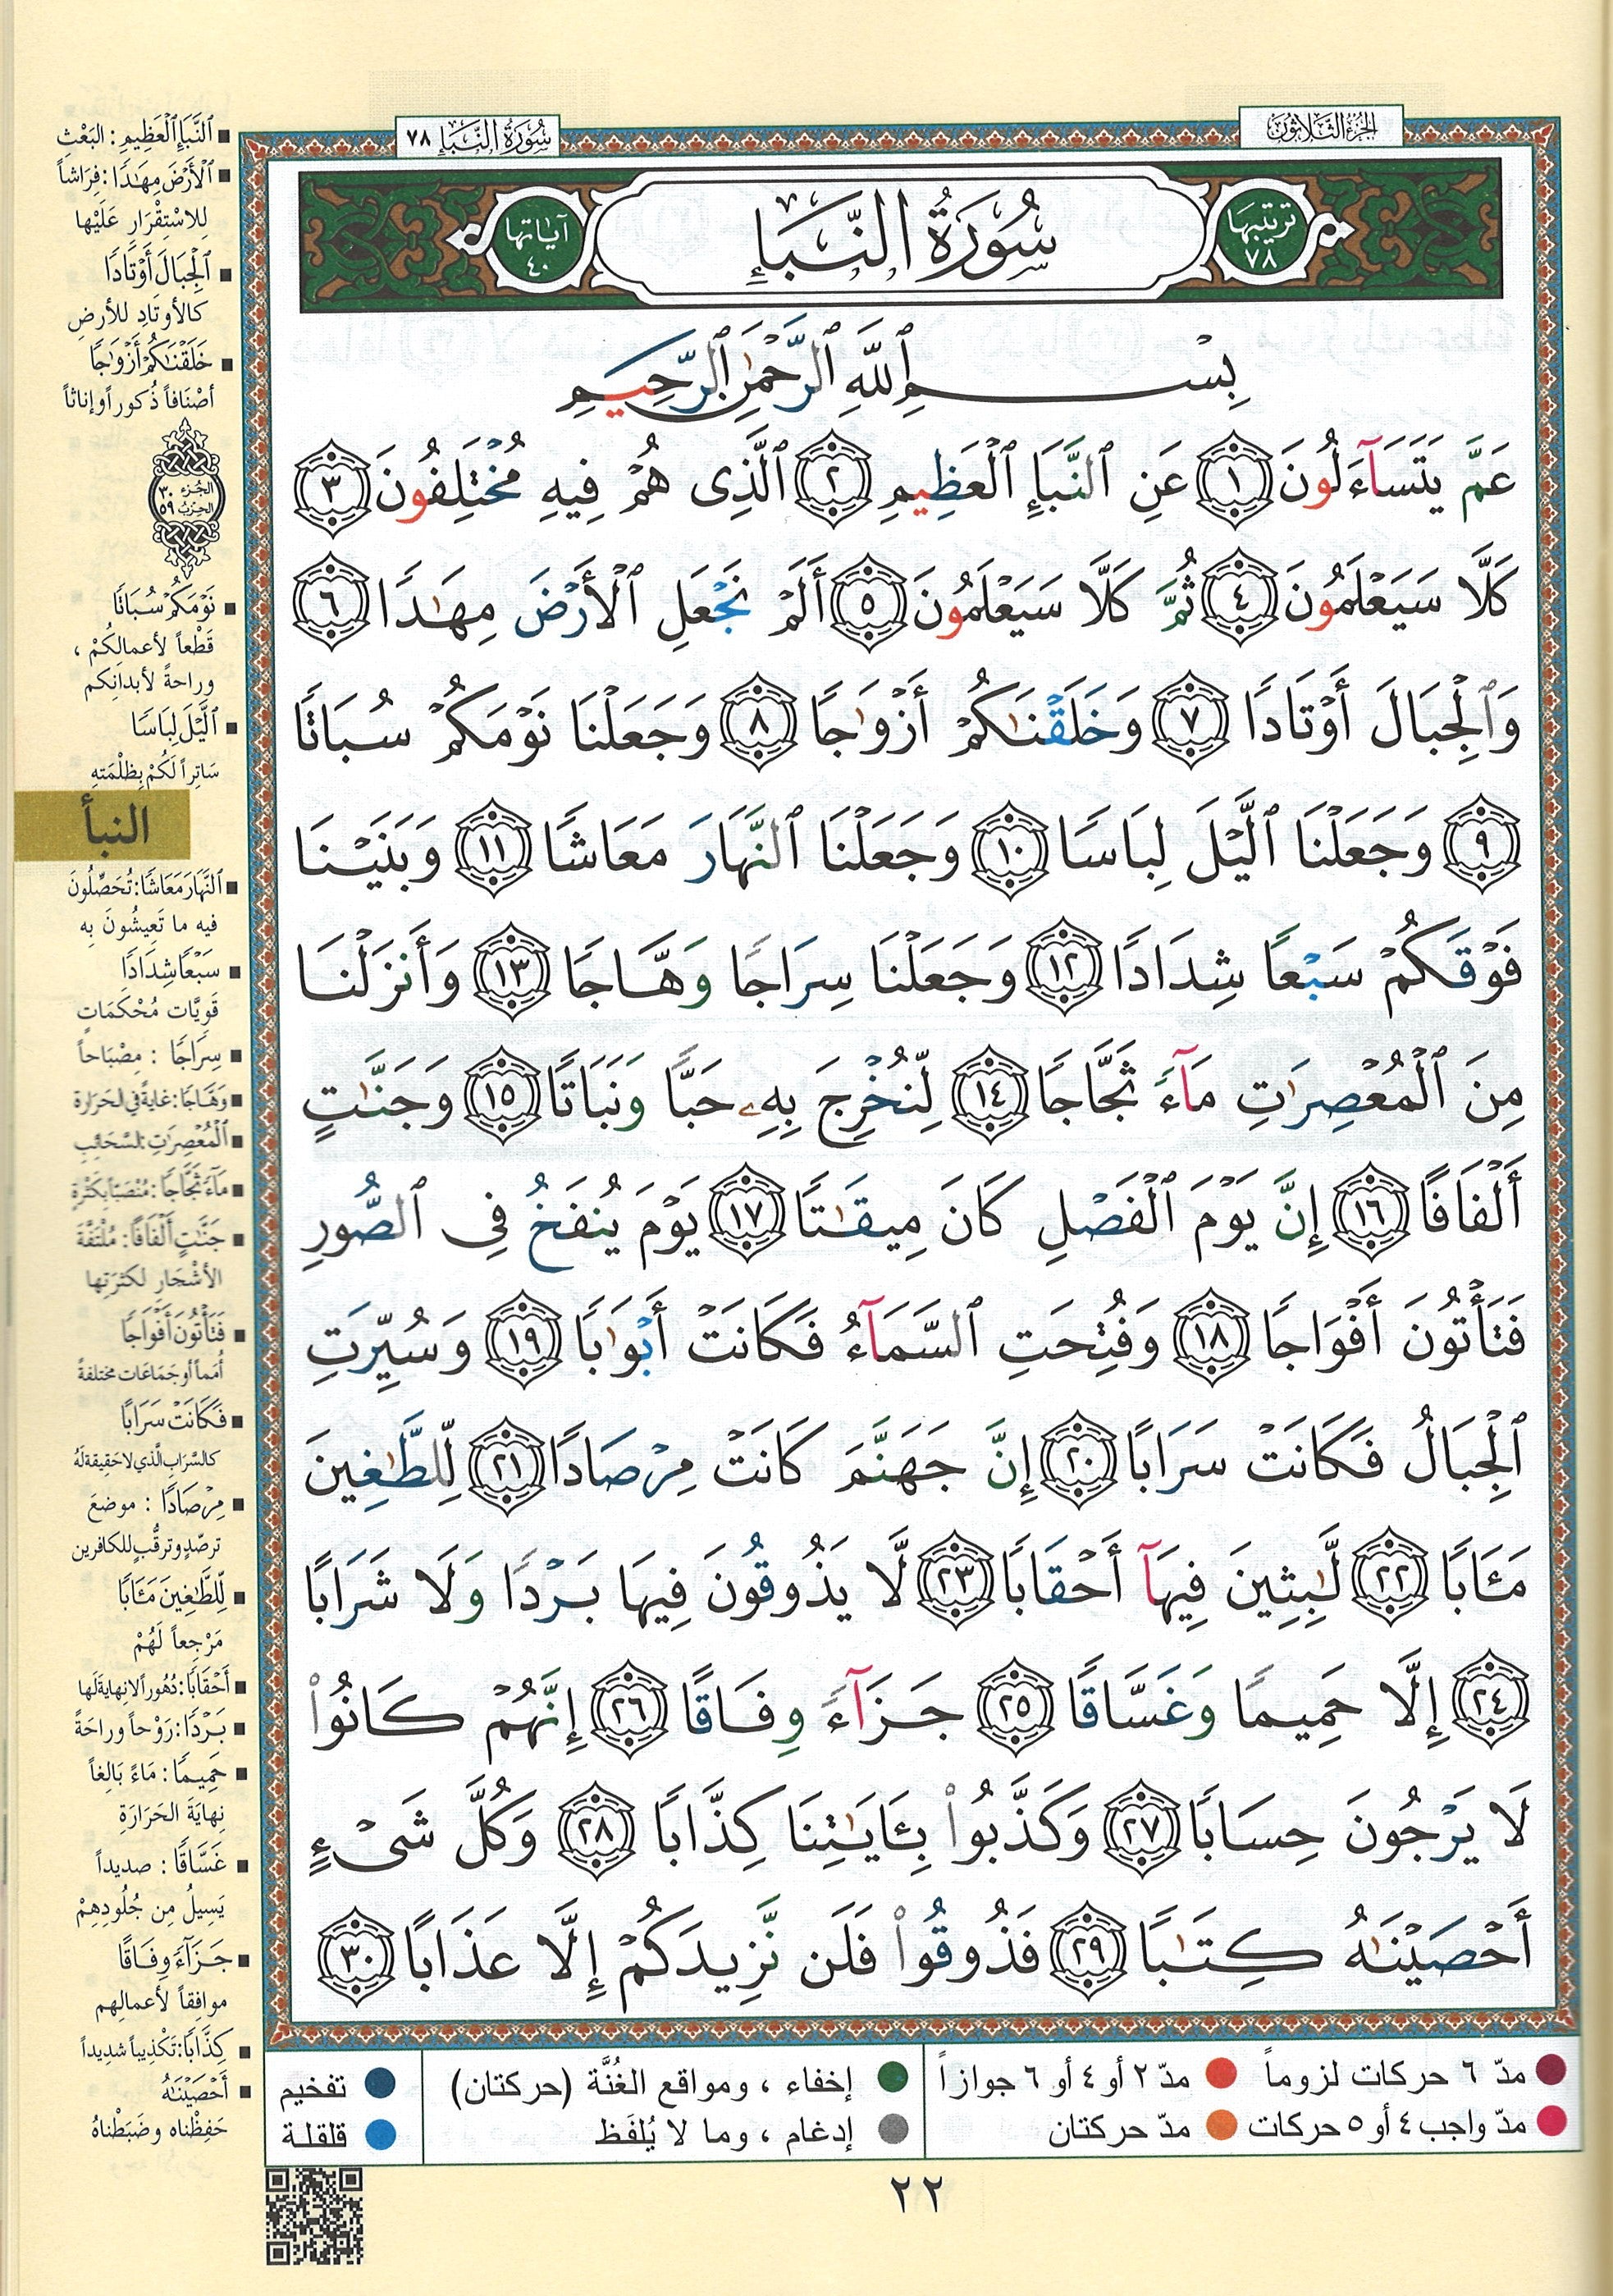 الجزء الثلاثون
سُورَةُ النَّبَإِ ٧٨
ترتيبها
٧٨
سُورَةُ النَّبَإِ
آياتها
٤٠
بِسْمِ ٱللَّهِ ٱلرَّحْمَٰنِ ٱلرَّحِيمِ
عَمَّ يَتَسَآءَلُونَ ١ عَنِ ٱلنَّبَإِ ٱلْعَظِيمِ ٢ ٱلَّذِى هُمْ فِيهِ مُخْتَلِفُونَ ٣
كَلَّا سَيَعْلَمُونَ ٤ ثُمَّ كَلَّا سَيَعْلَمُونَ ٥ أَلَمْ نَجْعَلِ ٱلْأَرْضَ مِهَٰدًا ٦
وَٱلْجِبَالَ أَوْتَادًا ٧ وَخَلَقْنَٰكُمْ أَزْوَٰجًا ٨ وَجَعَلْنَا نَوْمَكُمْ سُبَاتًا
٩ وَجَعَلْنَا ٱلَّيْلَ لِبَاسًا ١٠ وَجَعَلْنَا ٱلنَّهَارَ مَعَاشًا ١١ وَبَنَيْنَا
فَوْقَكُمْ سَبْعًا شِدَادًا ١٢ وَجَعَلْنَا سِرَاجًا وَهَّاجًا ١٣ وَأَنزَلْنَا
مِنَ ٱلْمُعْصِرَٰتِ مَآءً ثَجَّاجًا ١٤ لِّنُخْرِجَ بِهِۦ حَبًّا وَنَبَاتًا ١٥ وَجَنَّٰتٍ
أَلْفَافًا ١٦ إِنَّ يَوْمَ ٱلْفَصْلِ كَانَ مِيقَٰتًا ١٧ يَوْمَ يُنفَخُ فِى ٱلصُّورِ
فَتَأْتُونَ أَفْوَاجًا ١٨ وَفُتِحَتِ ٱلسَّمَآءُ فَكَانَتْ أَبْوَٰبًا ١٩ وَسُيِّرَتِ
ٱلْجِبَالُ فَكَانَتْ سَرَابًا ٢٠ إِنَّ جَهَنَّمَ كَانَتْ مِرْصَادًا ٢١ لِّلطَّٰغِينَ
مَـَٔابًا ٢٢ لَّٰبِثِينَ فِيهَآ أَحْقَابًا ٢٣ لَّا يَذُوقُونَ فِيهَا بَرْدًا وَلَا شَرَابًا
٢٤ إِلَّا حَمِيمًا وَغَسَّاقًا ٢٥ جَزَآءً وِفَاقًا ٢٦ إِنَّهُمْ كَانُوا۟
لَا يَرْجُونَ حِسَابًا ٢٧ وَكَذَّبُوا۟ بِـَٔايَٰتِنَا كِذَّابًا ٢٨ وَكُلَّ شَىْءٍ
أَحْصَيْنَٰهُ كِتَٰبًا ٢٩ فَذُوقُوا۟ فَلَن نَّزِيدَكُمْ إِلَّا عَذَابًا ٣٠
■ ٱلنَّبَإِ ٱلْعَظِيمِ : البَعْثِ
■ ٱلْأَرْضَ مِهَٰدًا : فِرَاشاً
لِلاسْتِقْرَارِ عَلَيْها
■ ٱلْجِبَالَ أَوْتَادًا
كالأوتَادِ للأرضِ
■ خَلَقْنَٰكُمْ أَزْوَٰجًا
أصْنَافاً ذُكوراً وإناثاً
الجزء ٣٠
الحزب ٥٩
■ نَوْمَكُمْ سُبَاتًا
قَطْعاً لأعمالِكُمْ ،
وراحةً لأبدانِكم
■ ٱلَّيْلَ لِبَاسًا
سَاتِراً لَكُمْ بِظلْمَتِهِ
النبأ
■ ٱلنَّهَارَ مَعَاشًا : تُحَصِّلُونَ
فيه ما تَعِيشُونَ بِه
■ سَبْعًا شِدَادًا
قَوِيَّات مُحْكَمَاتٍ
■ سِرَاجًا : مِصْبَاحاً
■ وَهَّاجًا : غايةً في الحَرَارة
■ ٱلْمُعْصِرَٰتِ : السَّحَائِبِ
■ مَآءً ثَجَّاجًا : مُنْصَبّاً بِكَثْرةٍ
■ جَنَّٰتٍ أَلْفَافًا : مُلْتَفَّةَ
الأشْجَارِ لكثرَتِها
■ فَتَأْتُونَ أَفْوَاجًا
أُمَماً أو جَمَاعَات مختلفةً
■ فَكَانَتْ سَرَابًا
كالسَّرَابِ الَّذي لا حَقِيقةَ لهُ
■ مِرْصَادًا : موضعَ
ترصّدٍ وترقُّبٍ للكافرين
■ لِّلطَّٰغِينَ مَـَٔابًا
مَرْجِعاً لَهُمْ
■ أَحْقَابًا : دُهُوراً لا نِهايةَ لَها
■ بَرْدًا : رَوْحاً وراحَةً
■ حَمِيمًا : مَاءً بَالِغاً
نِهايَةَ الحَرَارَةِ
■ غَسَّاقًا : صديداً
يَسِيلُ مِن جُلُودِهِمْ
■ جَزَآءً وِفَاقًا
موافِقاً لأعمالِهِم
■ كِذَّابًا : تَكْذِيباً شدِيداً
■ أَحْصَيْنَٰهُ
حَفِظْناه وضَبَطْناهُ
مدّ ٦ حركات لزوماً
مدّ ٢ أو ٤ أو ٦ جوازاً
مدّ واجب ٤ أو ٥ حركات
مدّ حركتان
إخفاء ، ومواقع الغُنَّة (حركتان)
إدغام ، وما لا يُلفَظ
تفخيم
قلقلة
٢٢